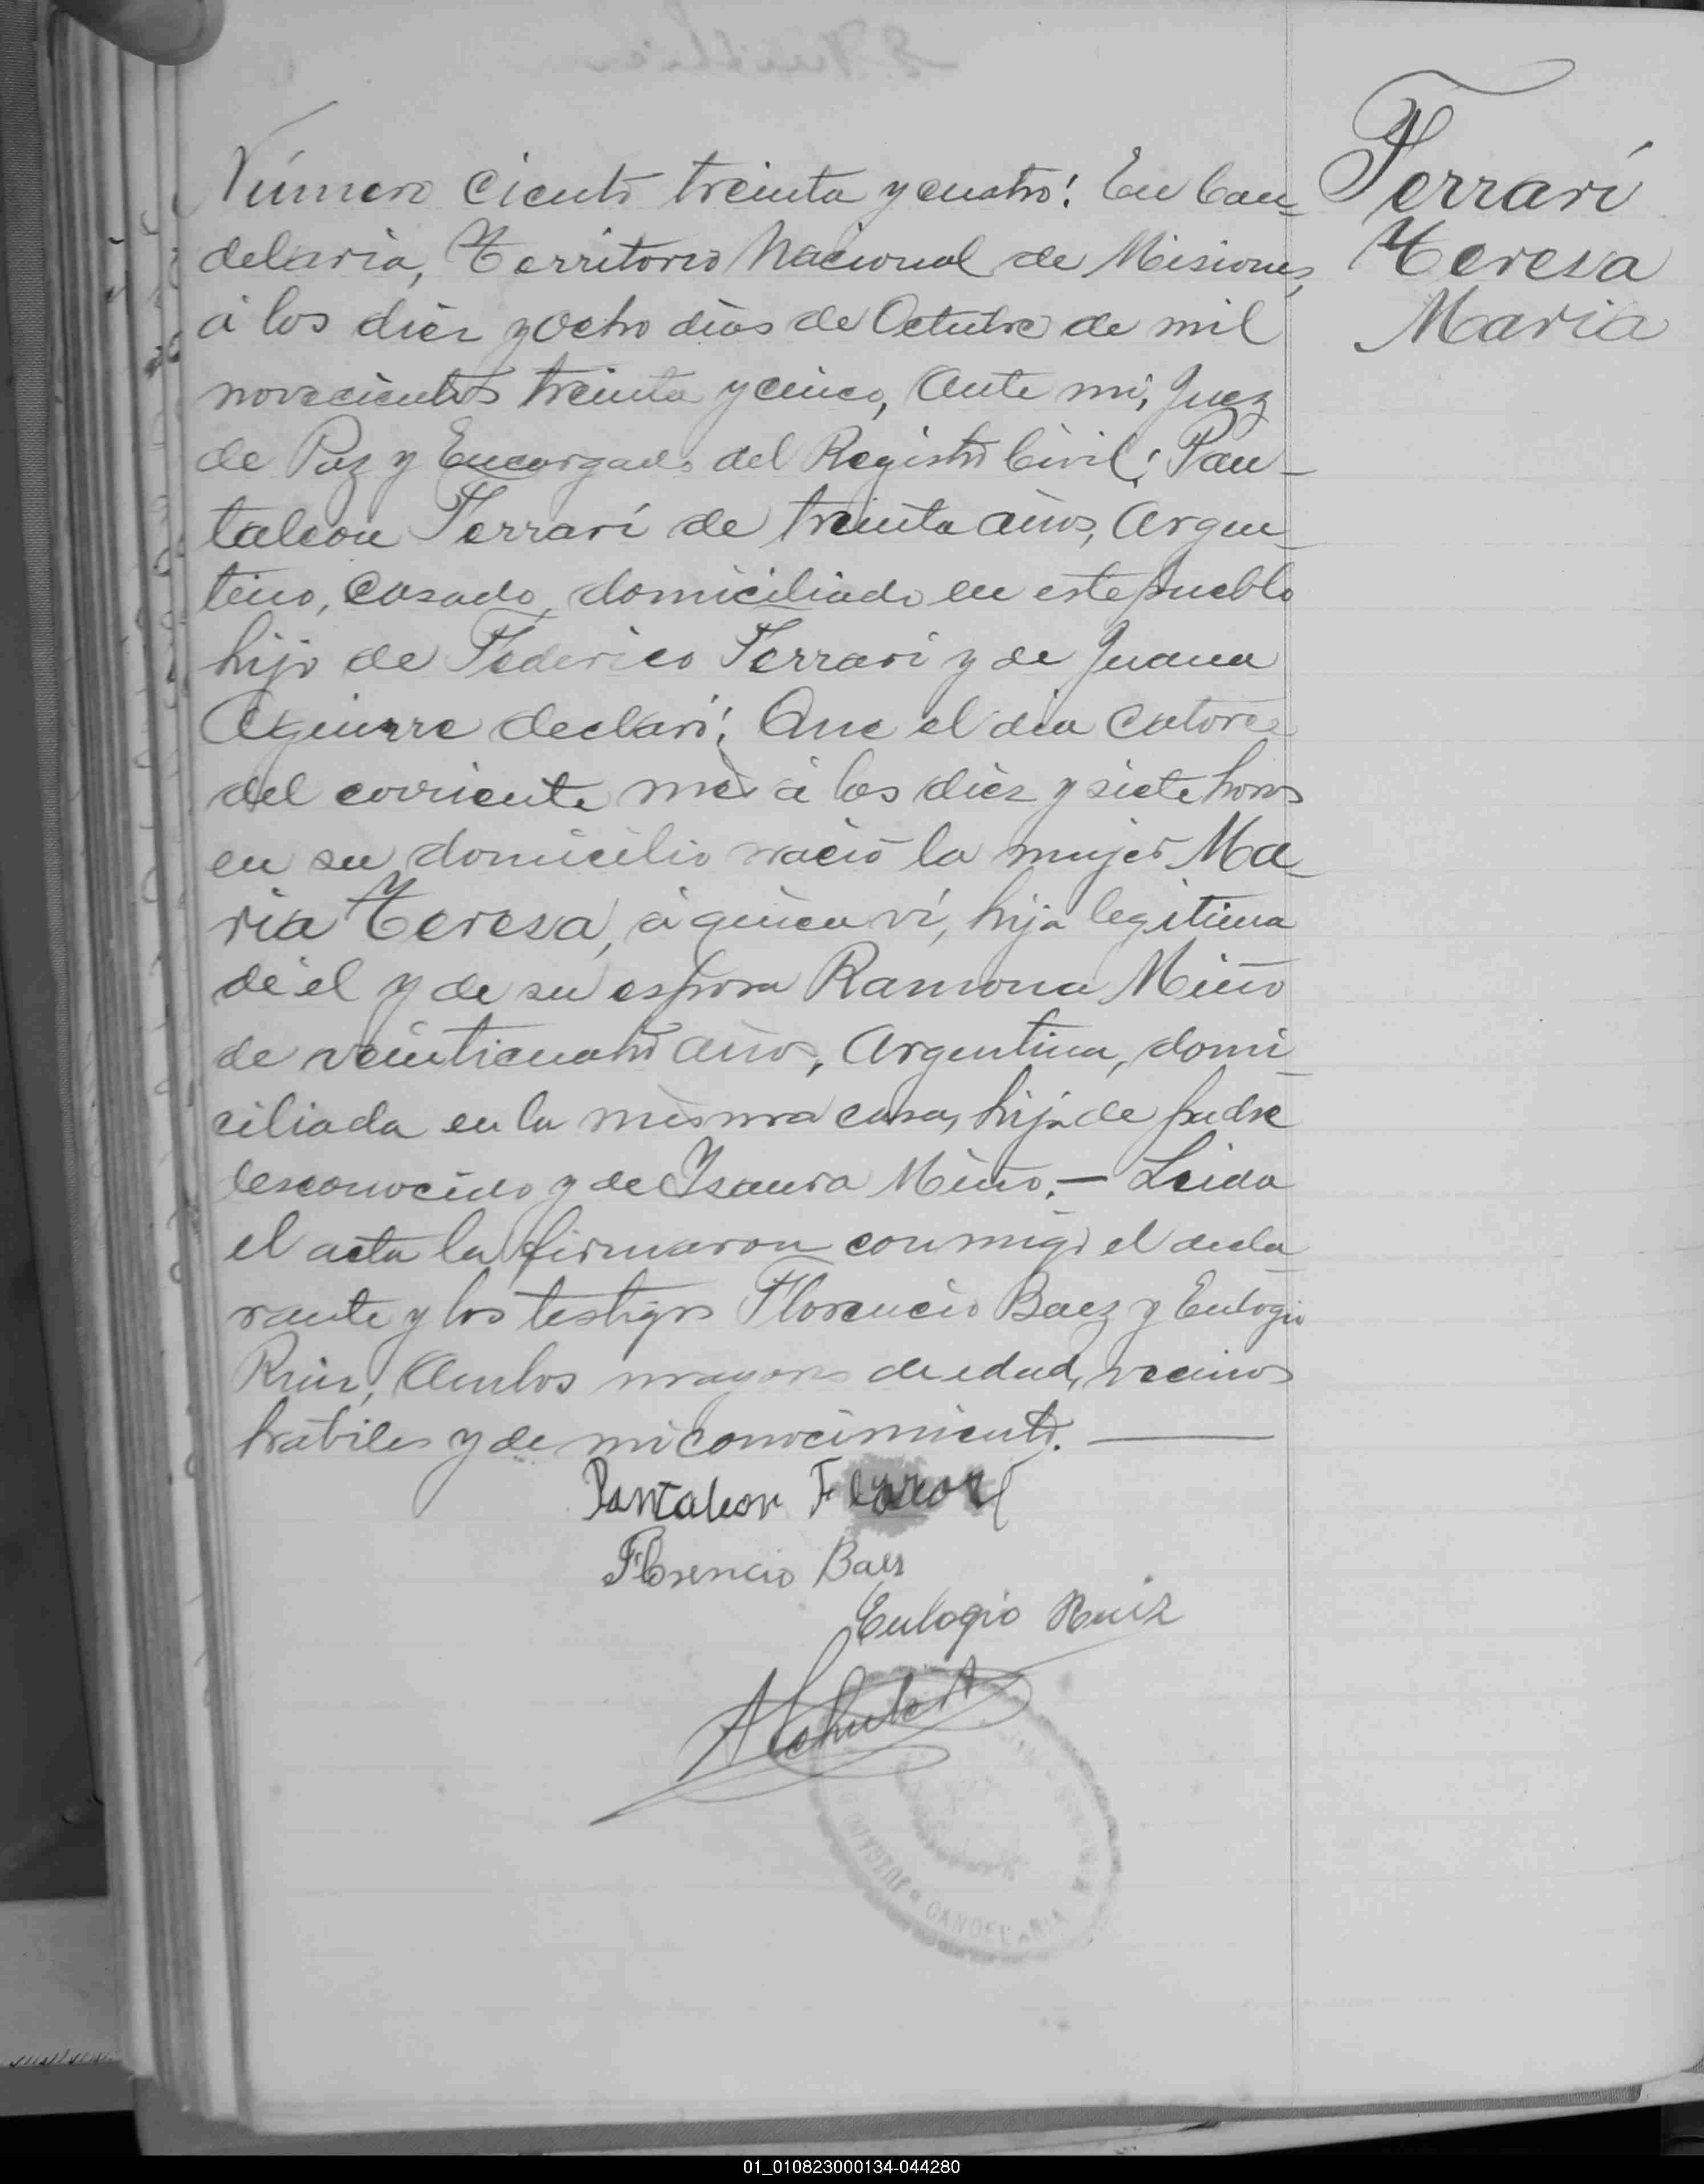 Número ciento treinta y cuatro: En Can-
delaria, Territorio Nacional de Misiones,
á los diez y ocho dias de Octubre de mil
novecientos treinta y cinco, Ante mi, Juez
de Paz y Encargado del Registro Civil; Pan-
taleon Ferrari de treinta años, Argen-
tino, casado, domiciliado en este pueblo
hijo de Federico Ferrari y de Juana
Aguirre declaró: Que el dia catorce
del corriente mes á las diez y siete horas
en su domicilio nació la mujer Ma-
ria Teresa, á quien ví, hija legitima
de él y de su esposa Ramona Miño
de veinticuatro años, Argentina, domi-
ciliada en la misma casa, hija de padre
desconocido y de Isaura Miño.— Leida
el acta la firmaron conmigo el decla-
rante y los testigos Florencio Baez y Eulogio
Ruiz, Ambos mayores de edad, vecinos
habiles y de mi conocimiento. —
Pantaleon Ferrari
Florencio Baez
Eulogio Ruiz
JUZGADO
CANDELARIA
Ferrari
Teresa
Maria
01_010823000134-044280